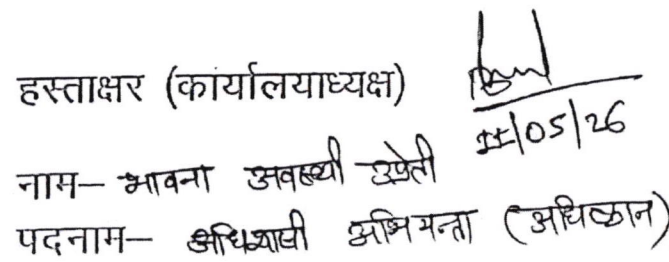 हस्ताक्षर (कार्यालयाध्यक्ष)
11/05/26
नाम– भावना अवस्थी उप्रेती
पदनाम– अधिशासी अभियन्ता (अधिष्ठान)